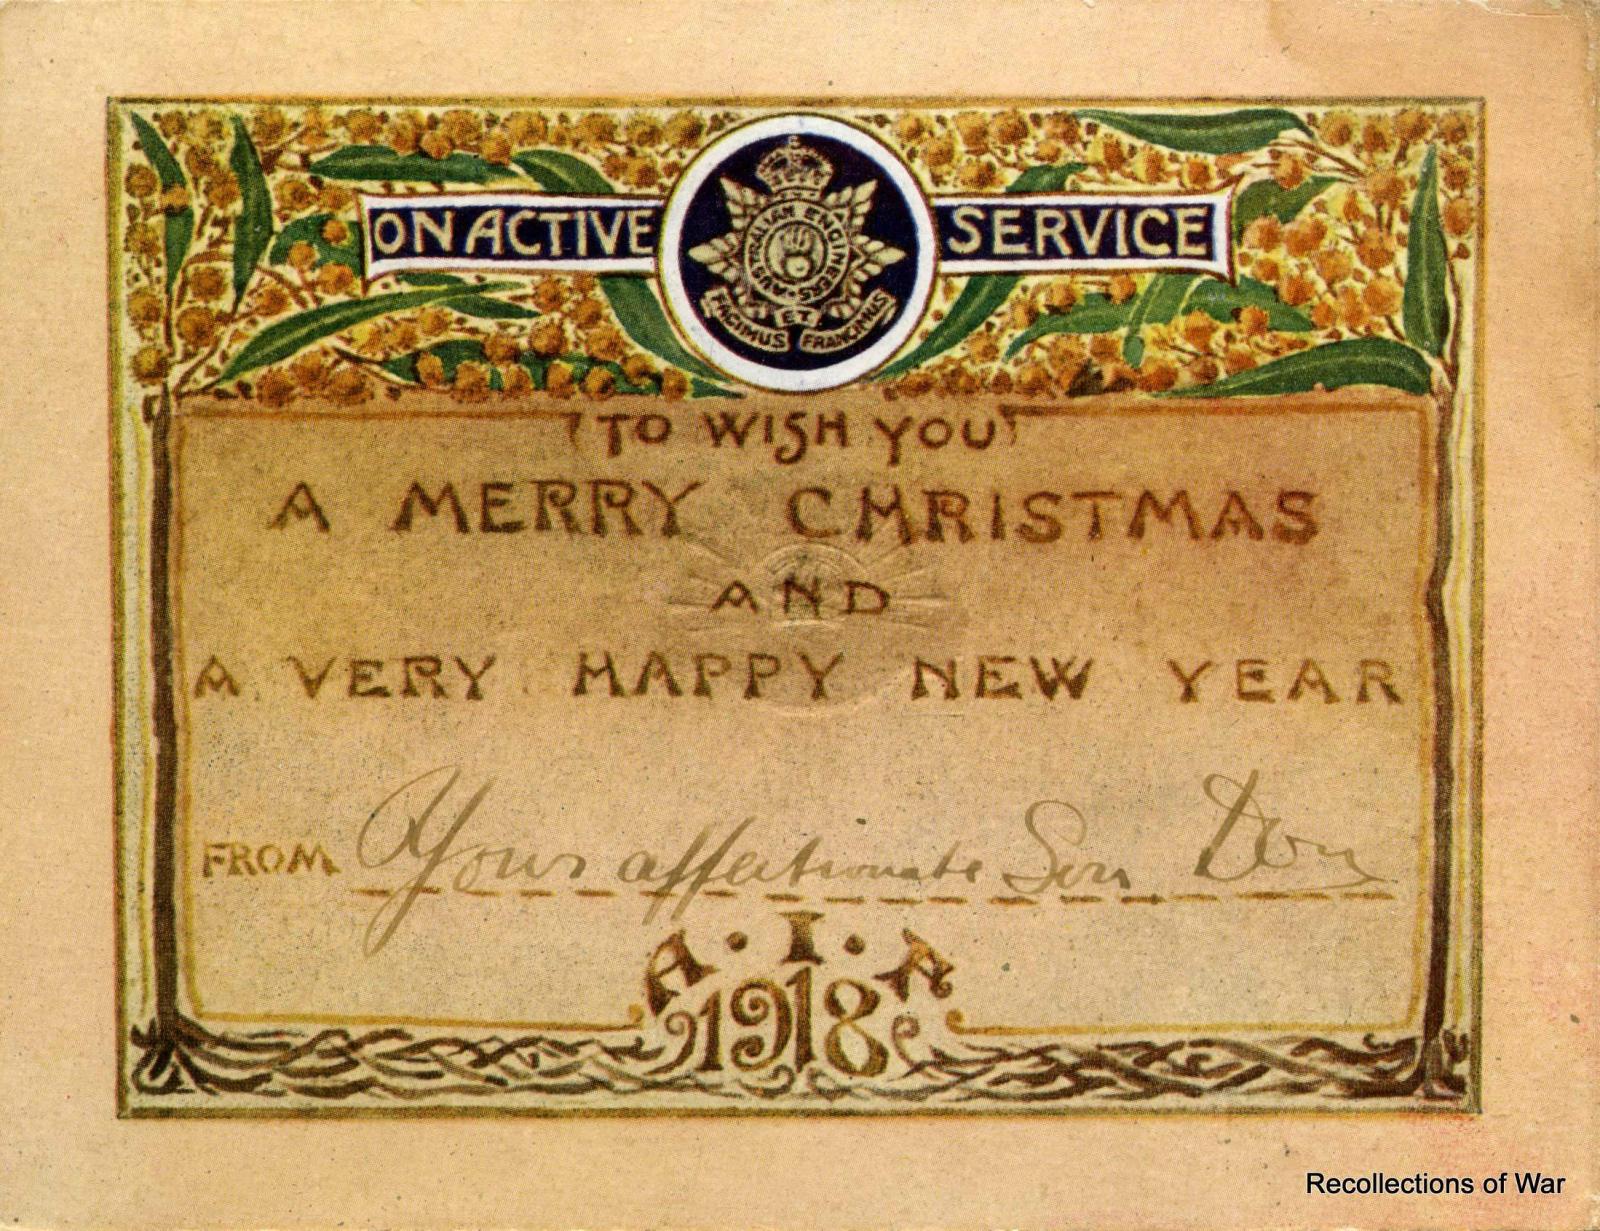 ON ACTIVE SERVICE
AUSTRALIAN ENGINEERS
FACIMUS ET FRANGIMUS
TO WISH YOU
A MERRY CHRISTMAS
AND
A VERY HAPPY NEW YEAR
FROM Your affectionate Son Don
A·I·A
1918
Recollections of War